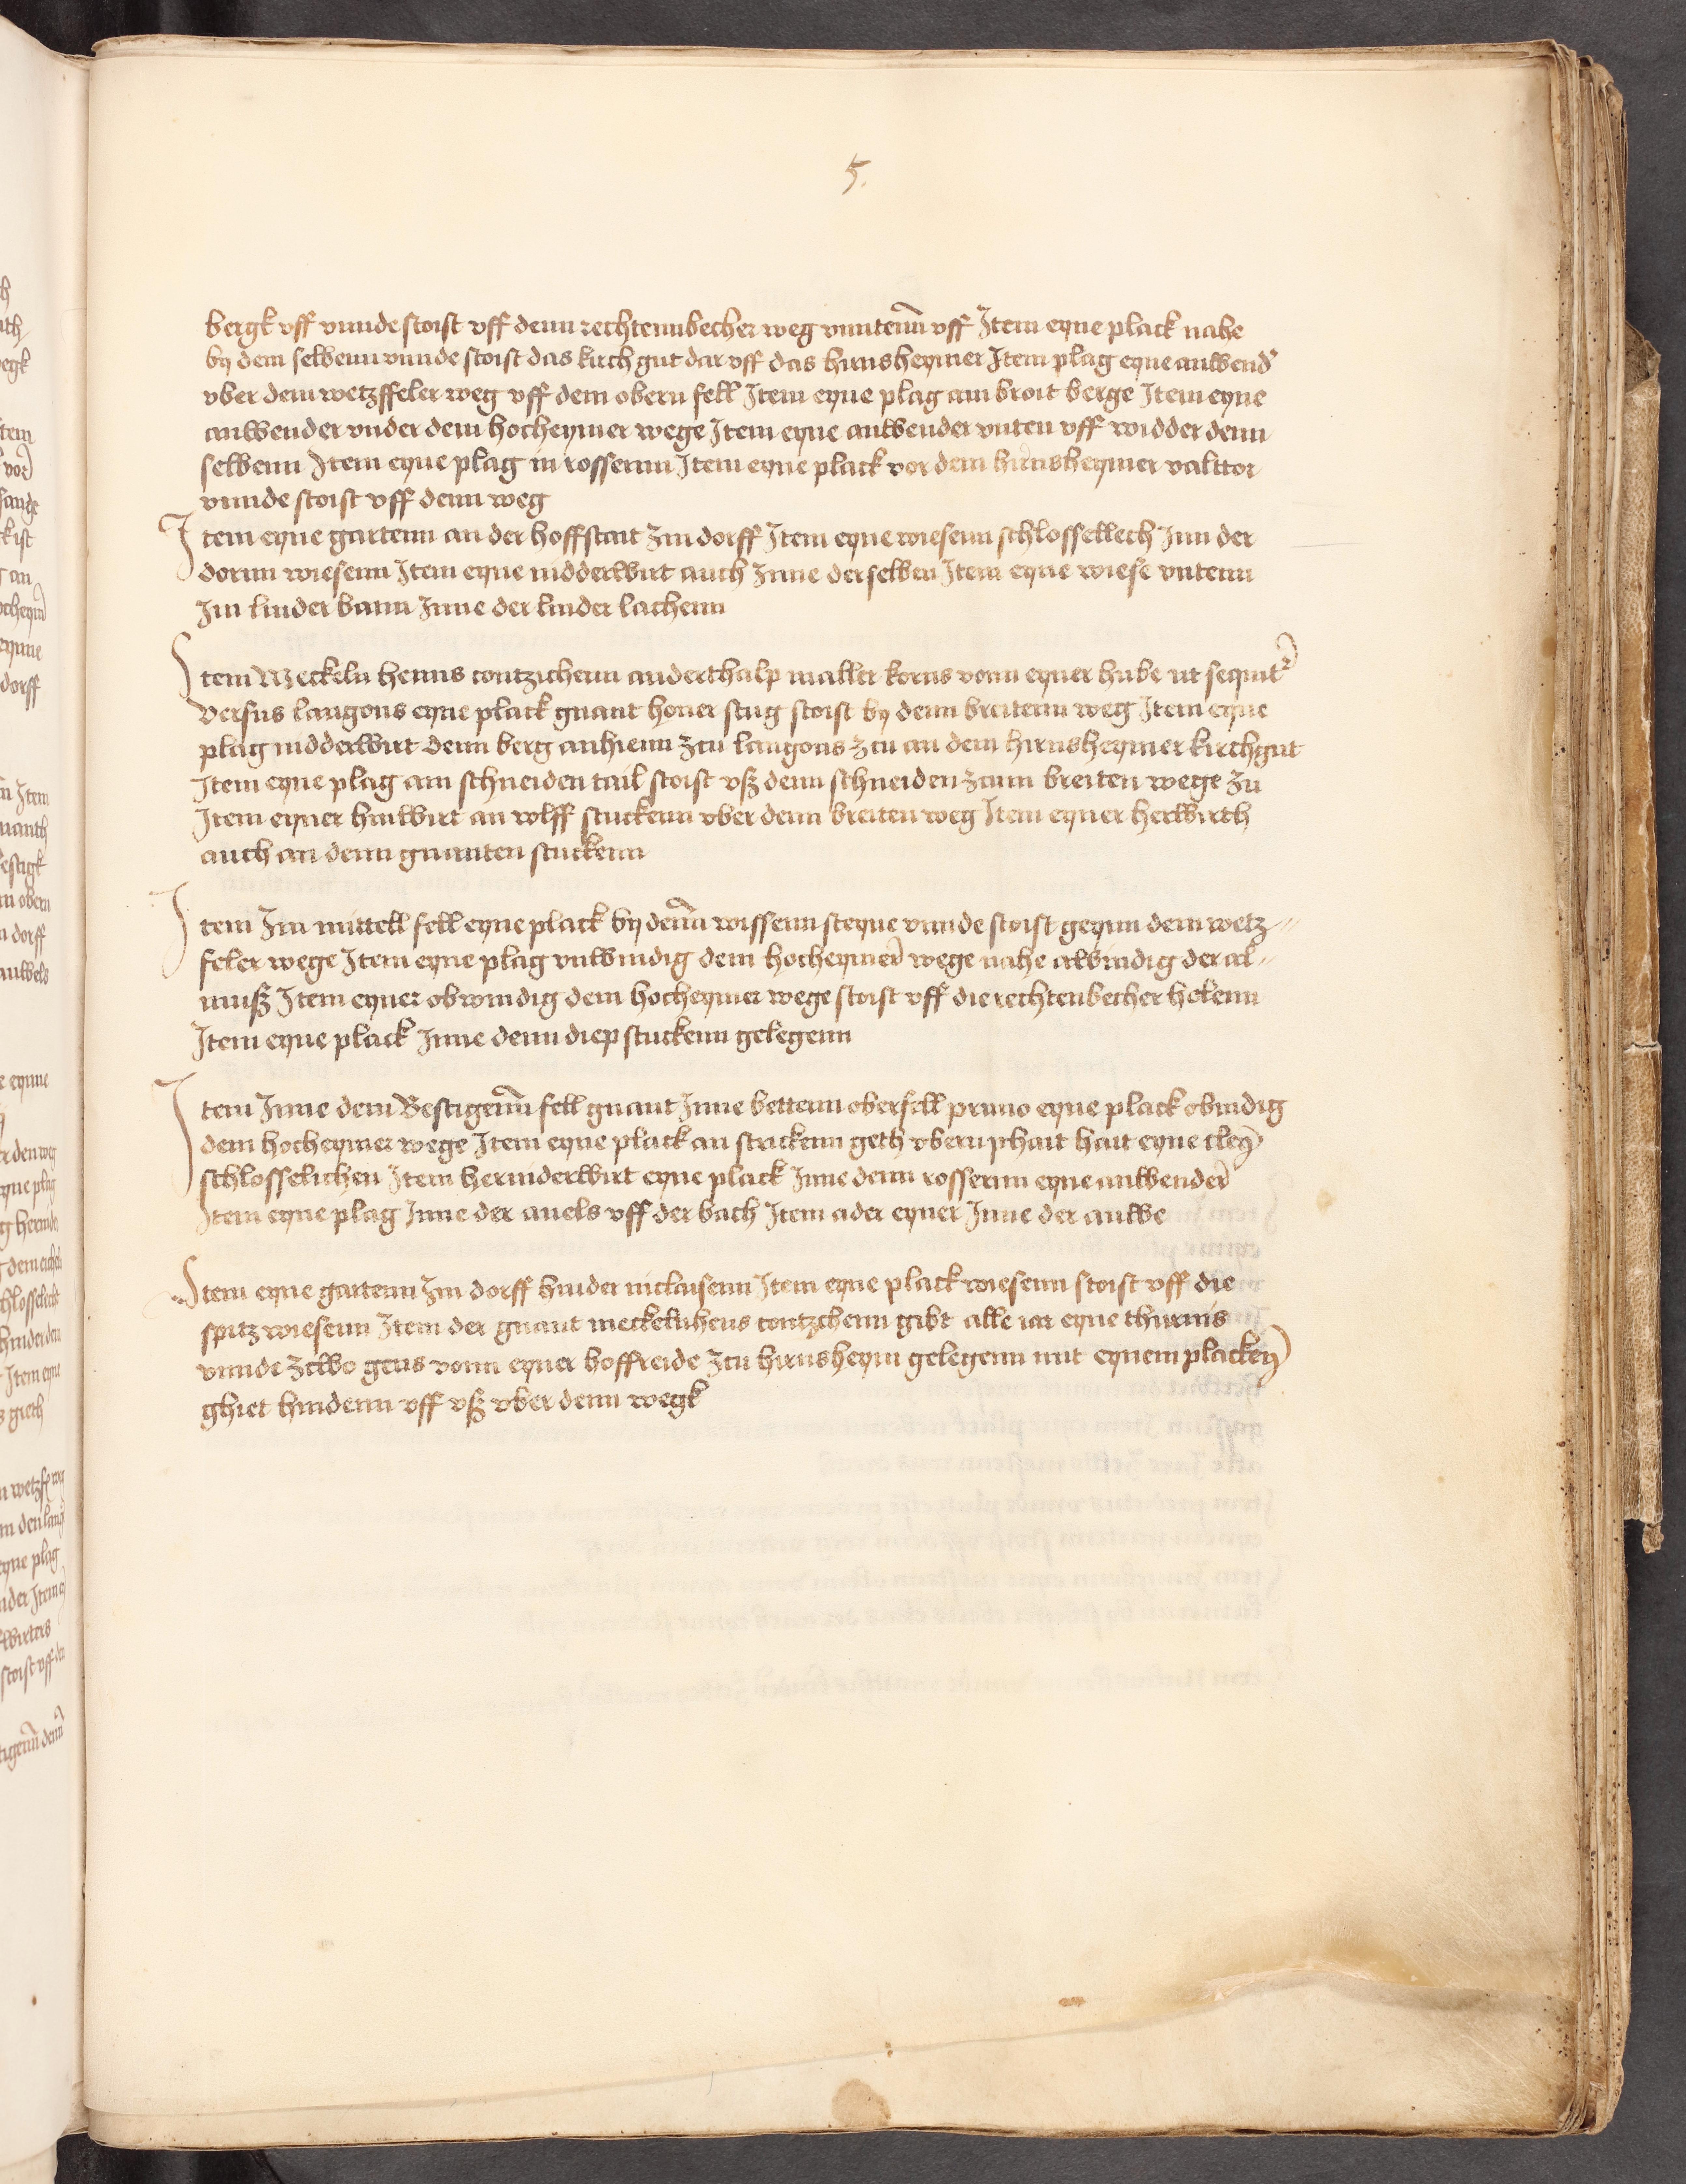 5.
bergk vff vnnde stoist vff denn rechtennbecher weg vnntenn vff Item eyne plack nahe
by dem selbenn vnnde stoist das kirch gut dar vff das hirnsheymer Item plag eyne anwend
vber dem wetzffeler weg vff dem obern fell Item eyne plag am broit berge Item eyne
anwender vnder dem hocheymer wege Item eyne anwender vnten vff widder denn
selbenn Item eyne plag in rossernn Item eyne plack vor dem hirnsheymer valttor
vnnde stoist vff denn weg
Item eyne gartenn an der hoffstait Im dorff Item eyne wiesenn schlossellech Inn der
dornn wiesenn Item eyne nidderwirt auch Inne derselben Item eyne wiese vntenn
Im linder bann Inne der linder lachenn
Item Meckeln henns contzichenn anderthalp mallter korns vonn eyner hube ut sequit
versus langons eyne plack gnant honer stug stoist by denn breitenn weg Item eyne
plag nidderwirt denn berg anhienn zcu langons zcu an dem hirnsheymer kirchgut
Item eyne plag am schneiden tail stoist vß denn schneiden zcum breiten wege zu
Item eyner hinwirt an wlff stuckenn vber denn breiten weg Item eyner herwirth
auch an denn gnanten stuckenn
Item Im mittell fell eyne plack by denn wissenn steyne vnnde stoist geynn dem wetz
feler wege Item eyne plag vnwindig dem hocheymer wege nahe alwindig der al
muß Item eyner obwindig dem hocheymer wege stoist vff die rechtenbecher holenn
Item eyne plack Inne denn diep stuckenn gelegenn
Item Inne dem Bestigenn fell gnant Inne bettenn oberfell primo eyne plack obindig
dem hocheymer wege Item eyne plack an strickenn geth vbern phait hait eyne cley
schlosselichen Item herniderwirt eyne plack Inne denn rossernn eyne anwender
Item eyne plag Inne der auels vff der bach Item ader eyner Inne der auwe
Item eyne gartenn Im dorff hinder niclaisenn Item eyne plack wiesenn stoist vff die
spitz wiesenn Item der gnant meckelnhens contzchenn gibt alle iar eyne thurnis
vnnde zcwo gens vonn eyner hoffreide zcu hirnsheym gelegenn mit eynem placken
ghiet hindenn vff vß vber denn wegk